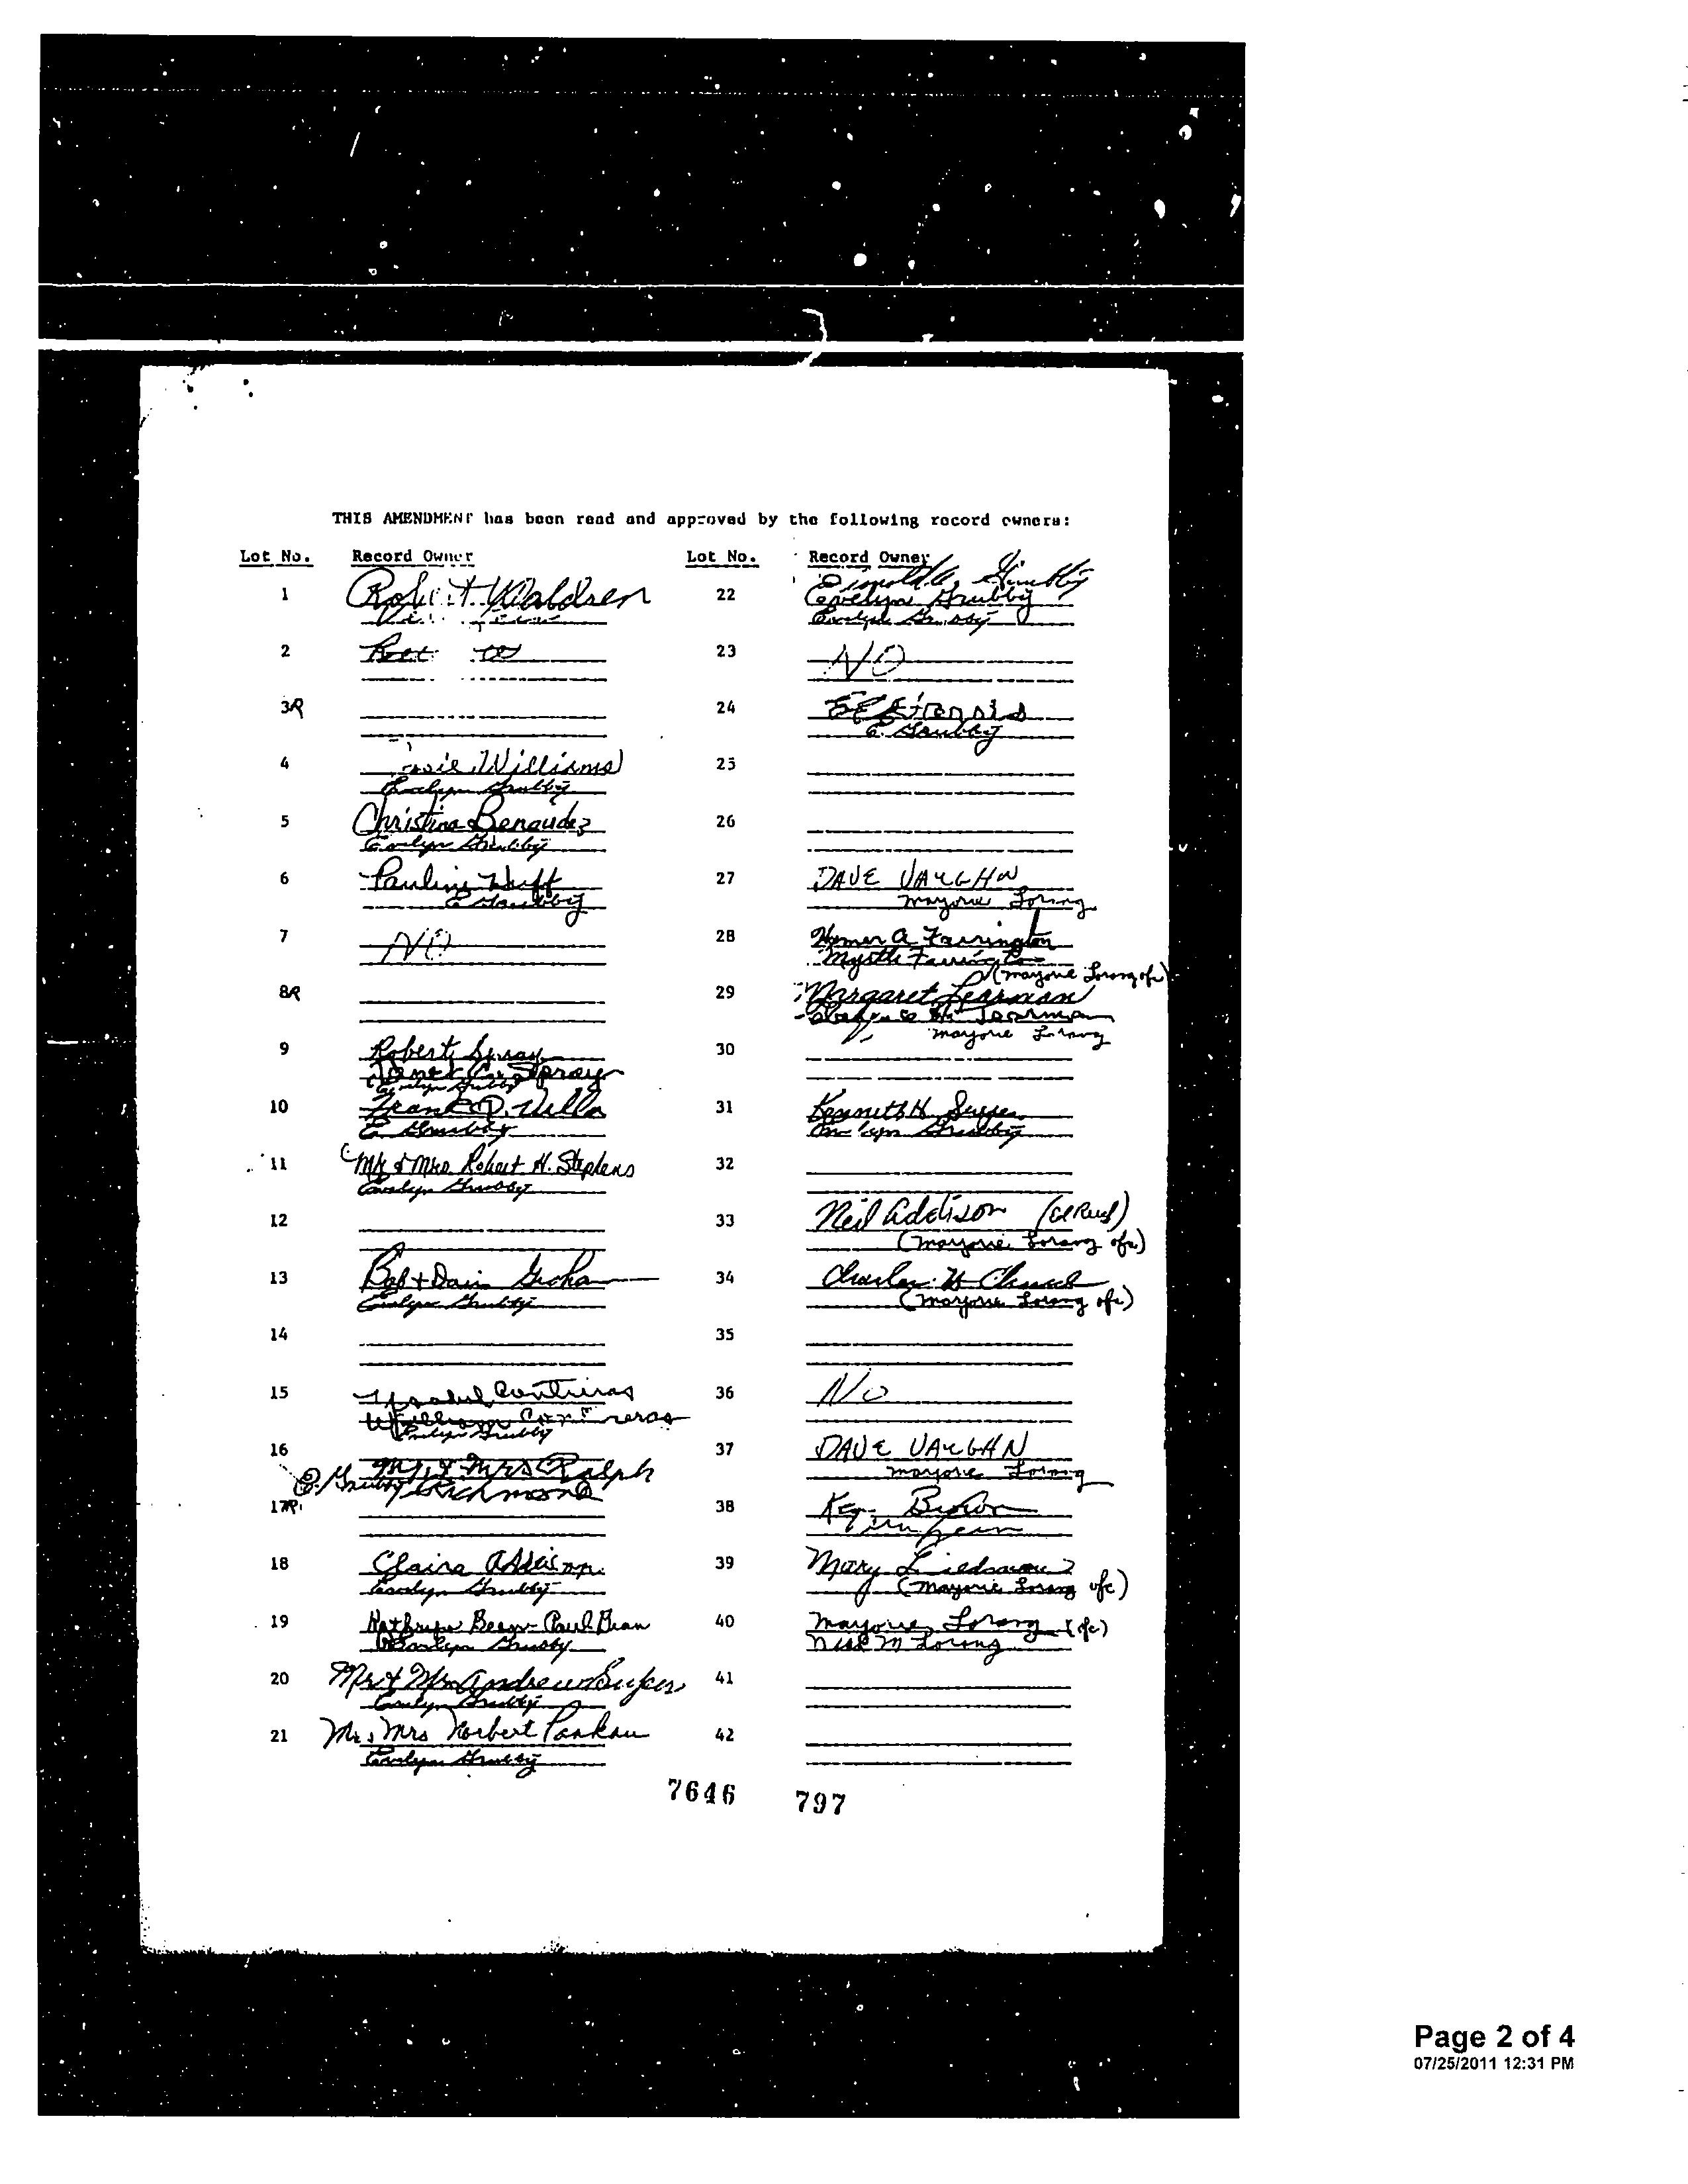 THIS AMENDMENT has been read and approved by the following record owners:
Lot No. Record Owner Lot No. Record Owner
1 Robert Waldren
2
3R
4 Williams
Evelyn Grubby
5 Christina Benaudez
Evelyn Grubby
6 Pauline Huff
E Grubby
7 NO
8R
9 Robert Spray
Janet Spray
Evelyn Grubby
10 Frank D. Villa
E Grubby
11 Mr & Mrs Robert H. Stephens
Evelyn Grubby
12
13 Bob +
Evelyn Grubby
14
15 Contreras
William Contreras
Evelyn Grubby
16 Mr & Mrs Ralph
E. Grubby Richmond
17R
18 Claire Addison
Evelyn Grubby
19 Kathryn Bean - Paul Bean
Evelyn Grubby
20 Mr & Mrs Andrew
Evelyn Grubby
21 Mr & Mrs Norbert Pankau
Evelyn Grubby
22 Grubby
Evelyn Grubby
Evelyn Grubby
23 NO
24
E. Grubby
25
26
27 DAVE VAUGHN
Marjorie Lorang
28 Homer A Farrington
Myrtle Farrington
(Marjorie Lorang ofc)
29 Margaret Learman
Marjorie Lorang
30
31 Kenneth H
Evelyn Grubby
32
33 Neil Addison
(Marjorie Lorang ofc)
34 Charles W
(Marjorie Lorang ofc)
35
36 No
37 DAVE VAUGHN
Marjorie Lorang
38 Brown
39 Mary
(Marjorie Lorang ofc)
40 Marjorie Lorang (ofc)
Nick M Lorang
41
42
7646 797
Page 2 of 4
07/25/2011 12:31 PM